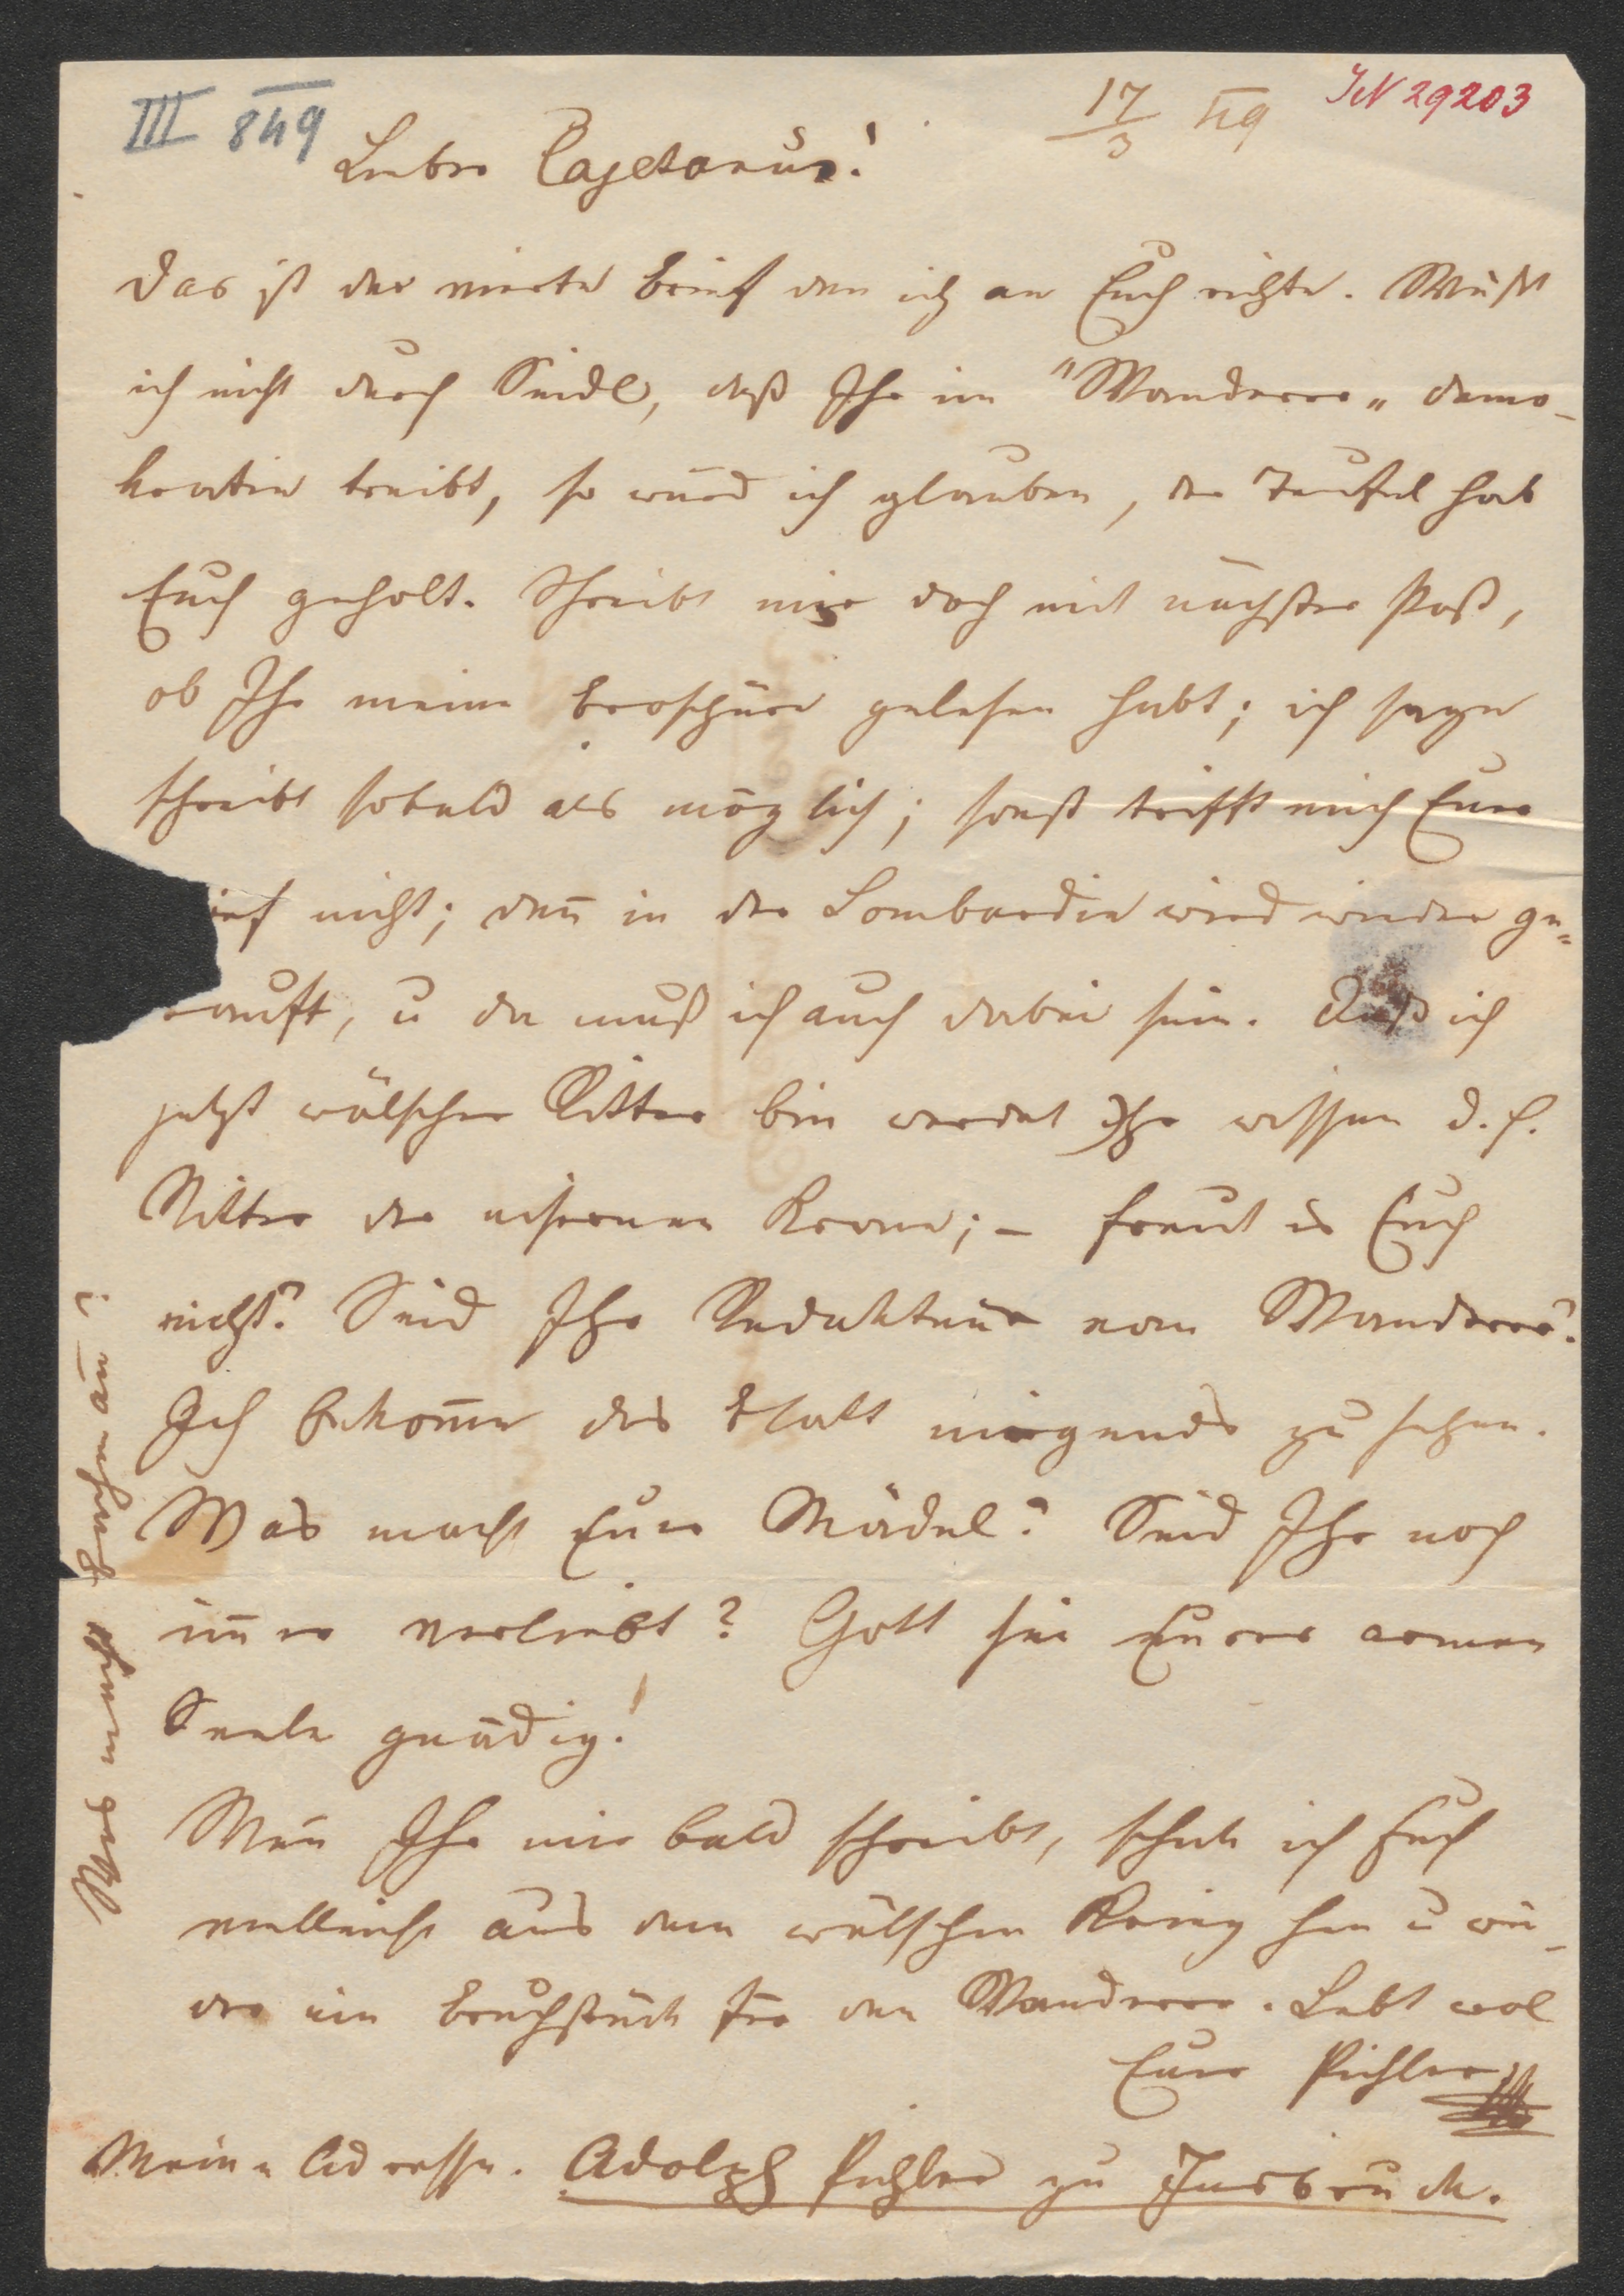 III 849
17/3 849
IN 29203
Lieber Cajetanus!
Das ist der vierte Brief den ich an Euch richte. Wüßt
ich nicht durch Seidl, daß Ihr im "Wanderer" demo-
kratie treibt, so würd ich glauben, der Teufel hab
Euch geholt. Schreibt mir doch mit nächster Post,
ob Ihr meine Broschüre gelesen habt; ich sage
schreibt sobald als möglich; sonst trifft mich Euer
ief nicht; deñ in der Lombardie wird wieder ge=
rauft, u da muß ich auch dabei sein. Daß ich
jetzt wälscher Ritter bin werdet Ihr wissen d. h.
Ritter der eisernen Krone; – freut es Euch
nicht? Seid Ihr Redakteur vom Wanderer?
Ich bekom̄e das Blatt nirgends zu sehen.
Was macht Euer Mädel? Seid Ihr noch
im̄er verliebt? Gott sei Eurer armen
Seele gnädig!
Weñ Ihr mir bald schreibt, schick ich Euch
vielleicht aus dem wälschen Krieg hin u wie-
der ein Bruchstück für den Wanderer. Lebt wol
Euer Pichler
Meine Adresse. Adolph Pichler zu Insbruck.